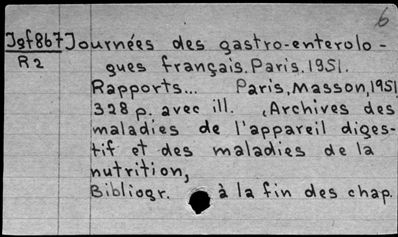 6
Jgf867 Journées des gastro-enterolo-
R2 gues français. Paris. 1951.
Rapports... Paris, Masson, 1951
328 p. avec ill. (Archives des
maladies de l'appareil diges-
tif et des maladies de la
nutrition,
Bibliogr. à la fin des chap.